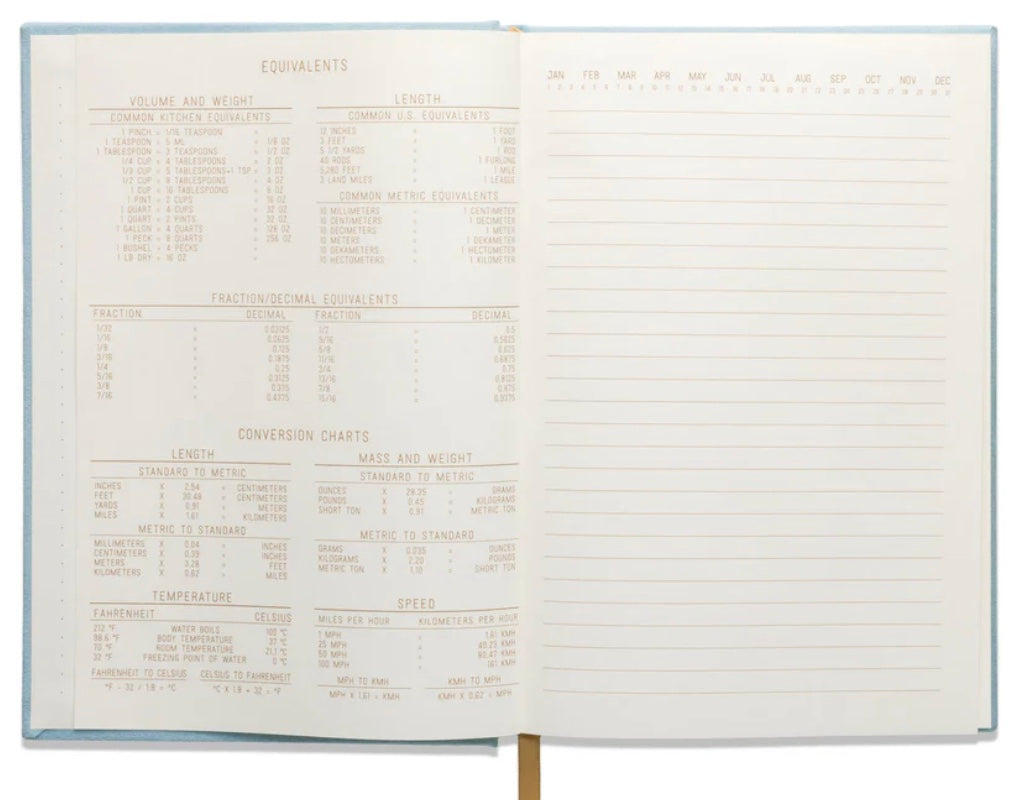 EQUIVALENTS
VOLUME AND WEIGHT
COMMON KITCHEN EQUIVALENTS
1 PINCH = 1/16 TEASPOON =
1 TEASPOON = 5 ML = 1/6 OZ
1 TABLESPOON = 3 TEASPOONS = 1/2 OZ
1/4 CUP = 4 TABLESPOONS = 2 OZ
1/3 CUP = 5 TABLESPOONS+1 TSP = 3 OZ
1/2 CUP = 8 TABLESPOONS = 4 OZ
1 CUP = 16 TABLESPOONS = 8 OZ
1 PINT = 2 CUPS = 16 OZ
1 QUART = 4 CUPS = 32 OZ
1 QUART = 2 PINTS = 32 OZ
1 GALLON = 4 QUARTS = 128 OZ
1 PECK = 8 QUARTS = 256 OZ
1 BUSHEL = 4 PECKS
1 LB DRY = 16 OZ =
LENGTH
COMMON U.S. EQUIVALENTS
12 INCHES = 1 FOOT
3 FEET = 1 YARD
5 1/2 YARDS = 1 ROD
40 RODS = 1 FURLONG
5,280 FEET = 1 MILE
3 LAND MILES = 1 LEAGUE
COMMON METRIC EQUIVALENTS
10 MILLIMETERS = 1 CENTIMETER
10 CENTIMETERS = 1 DECIMETER
10 DECIMETERS = 1 METER
10 METERS = 1 DEKAMETER
10 DEKAMETERS = 1 HECTOMETER
10 HECTOMETERS = 1 KILOMETER
FRACTION/DECIMAL EQUIVALENTS
FRACTION DECIMAL
1/32 = 0.03125
1/16 = 0.0625
1/8 = 0.125
3/16 = 0.1875
1/4 = 0.25
5/16 = 0.3125
3/8 = 0.375
7/16 = 0.4375
FRACTION DECIMAL
1/2 = 0.5
9/16 = 0.5625
5/8 = 0.625
11/16 = 0.6875
3/4 = 0.75
13/16 = 0.8125
7/8 = 0.875
15/16 = 0.9375
CONVERSION CHARTS
LENGTH
STANDARD TO METRIC
INCHES X 2.54 = CENTIMETERS
FEET X 30.48 = CENTIMETERS
YARDS X 0.91 = METERS
MILES X 1.61 = KILOMETERS
METRIC TO STANDARD
MILLIMETERS X 0.04 = INCHES
CENTIMETERS X 0.39 = INCHES
METERS X 3.28 = FEET
KILOMETERS X 0.62 = MILES
MASS AND WEIGHT
STANDARD TO METRIC
OUNCES X 28.35 = GRAMS
POUNDS X 0.45 = KILOGRAMS
SHORT TON X 0.91 = METRIC TON
METRIC TO STANDARD
GRAMS X 0.035 = OUNCES
KILOGRAMS X 2.20 = POUNDS
METRIC TON X 1.10 = SHORT TON
TEMPERATURE
FAHRENHEIT CELSIUS
212 °F WATER BOILS 100 °C
98.6 °F BODY TEMPERATURE 37 °C
70 °F ROOM TEMPERATURE 21.1 °C
32 °F FREEZING POINT OF WATER 0 °C
FAHRENHEIT TO CELSIUS CELSIUS TO FAHRENHEIT
°F - 32 / 1.8 = °C °C X 1.8 + 32 = °F
SPEED
MILES PER HOUR KILOMETERS PER HOUR
1 MPH = 1.61 KMH
25 MPH = 40.23 KMH
50 MPH = 80.47 KMH
100 MPH = 161 KMH
MPH TO KMH KMH TO MPH
MPH X 1.61 = KMH KMH X 0.62 = MPH
JAN FEB MAR APR MAY JUN JUL AUG SEP OCT NOV DEC
1 2 3 4 5 6 7 8 9 10 11 12 13 14 15 16 17 18 19 20 21 22 23 24 25 26 27 28 29 30 31